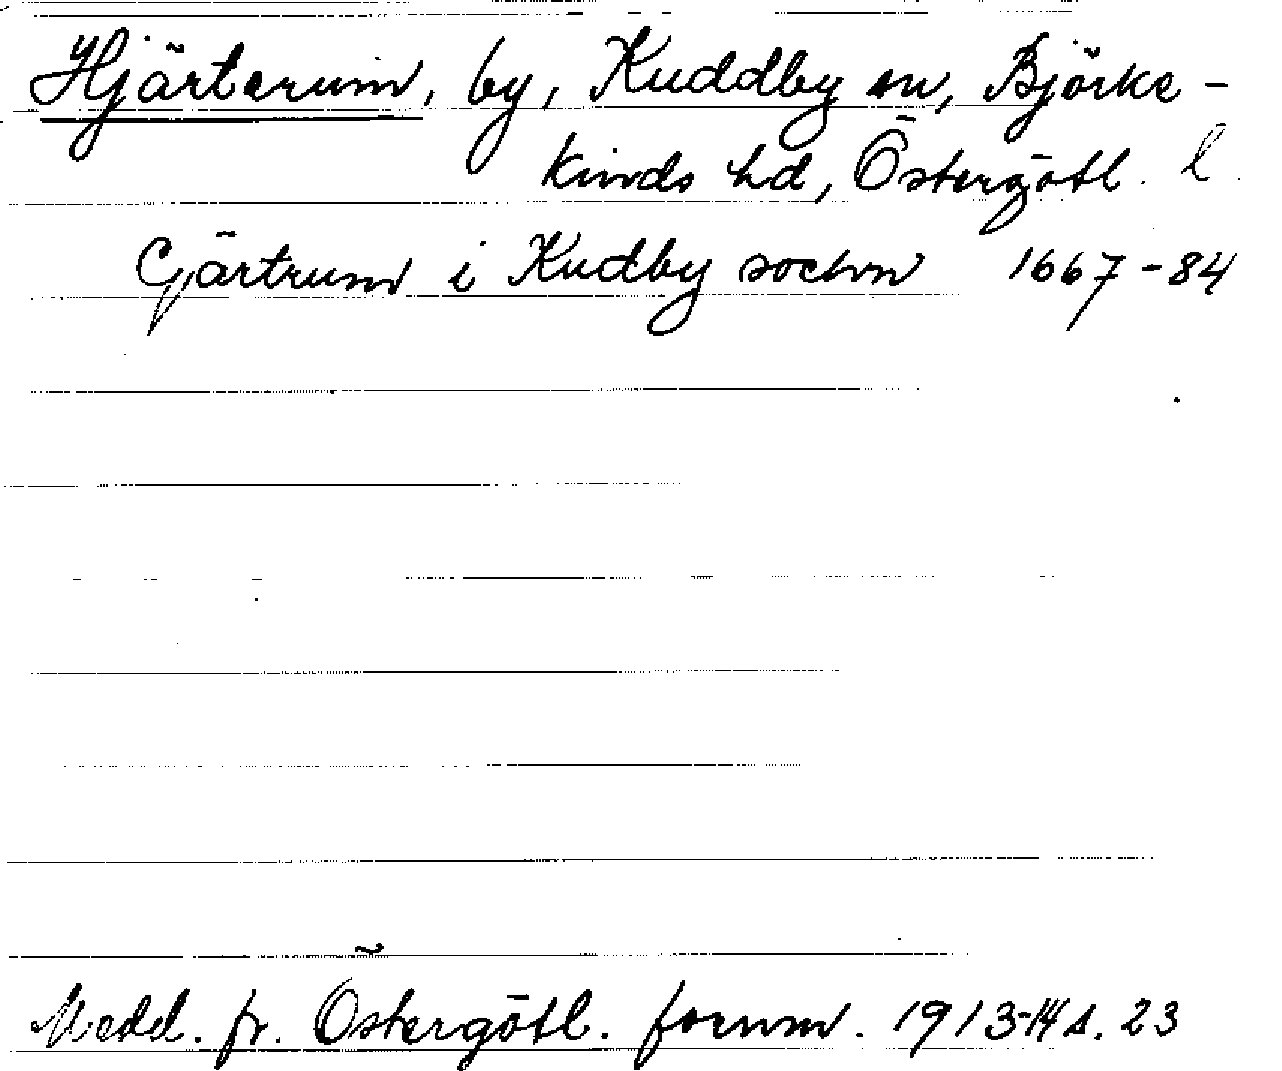 Hjärterum, by, Kuddby sn, Björke-
kinds hd, Östergötl. l.
Gärtrum i Kudby sochn 1667-84
Medd. fr. Östergötl. fornm. 1913-14 s. 23